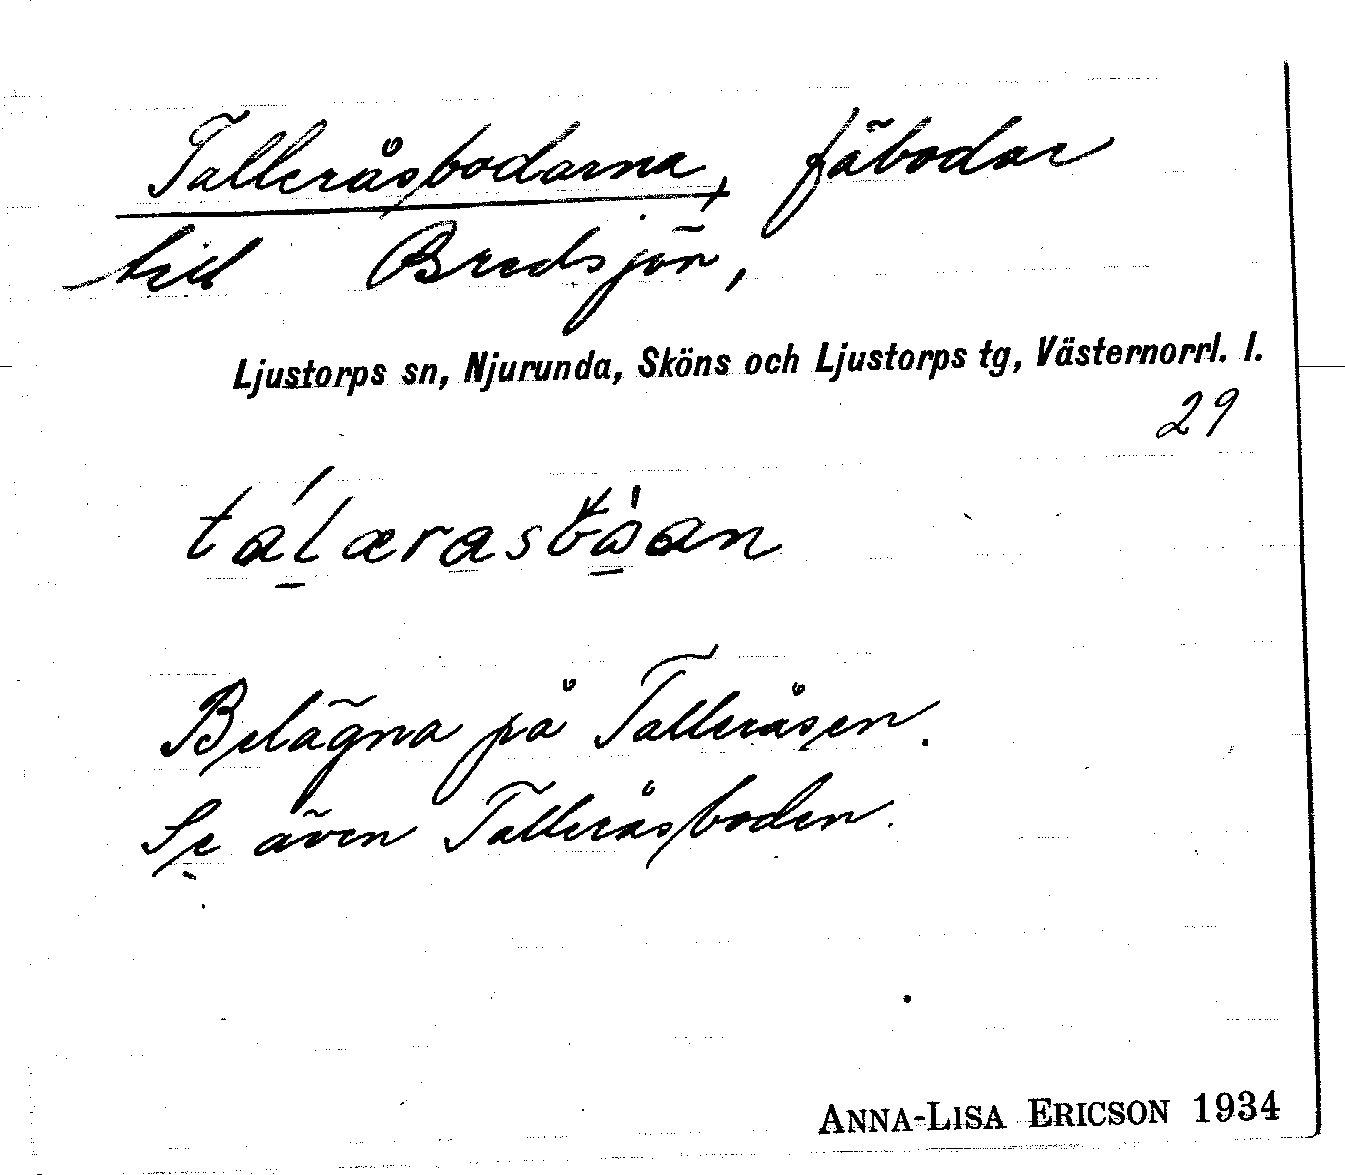 Talleråsbodarna, fäbodar
till Bredsjön,
Ljustorps sn, Njurunda, Sköns och Ljustorps tg, Västernorrl. l.
29
Belägna på Talleråsen.
Se även Talleråsboden.
ANNA-LISA ERICSON 1934